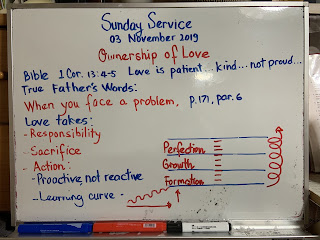 Sunday Service
03 November 2019
Ownership of Love
Bible 1 Cor. 13:4-5 Love is patient...kind...not proud...
True Father's Words:
When you face a problem, p.171, par. 6
Love takes:
- Responsibility
- Sacrifice
- Action:
- Proactive, not reactive
- Learning curve -
Perfection
Growth
Formation